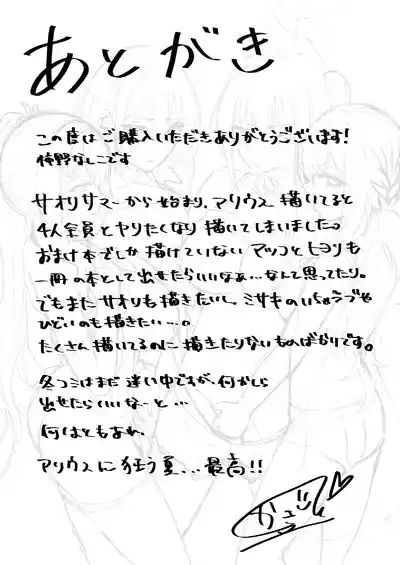 あとがき
この度はご購入いただきありがとうございます!
柿野なしこです
サオリサマーから始まり、アリウス描いてると
4人全員とヤりたくなり描いてしまいました。
おまけ本でしか描けていないアツコとヒヨリも
一冊の本として出せたらいいなぁ…なんて思ってたり。
でもまたサオリも描きたいし、ミサキのいちゃラブや
ひどいのも描きたい…。
たくさん描いてるのに描きたりないものばかりです。
冬コミはまだ迷い中ですが、何かしら
出せたらいいなーと…
何はともあれ、
アリウスに狂う夏…最高!!